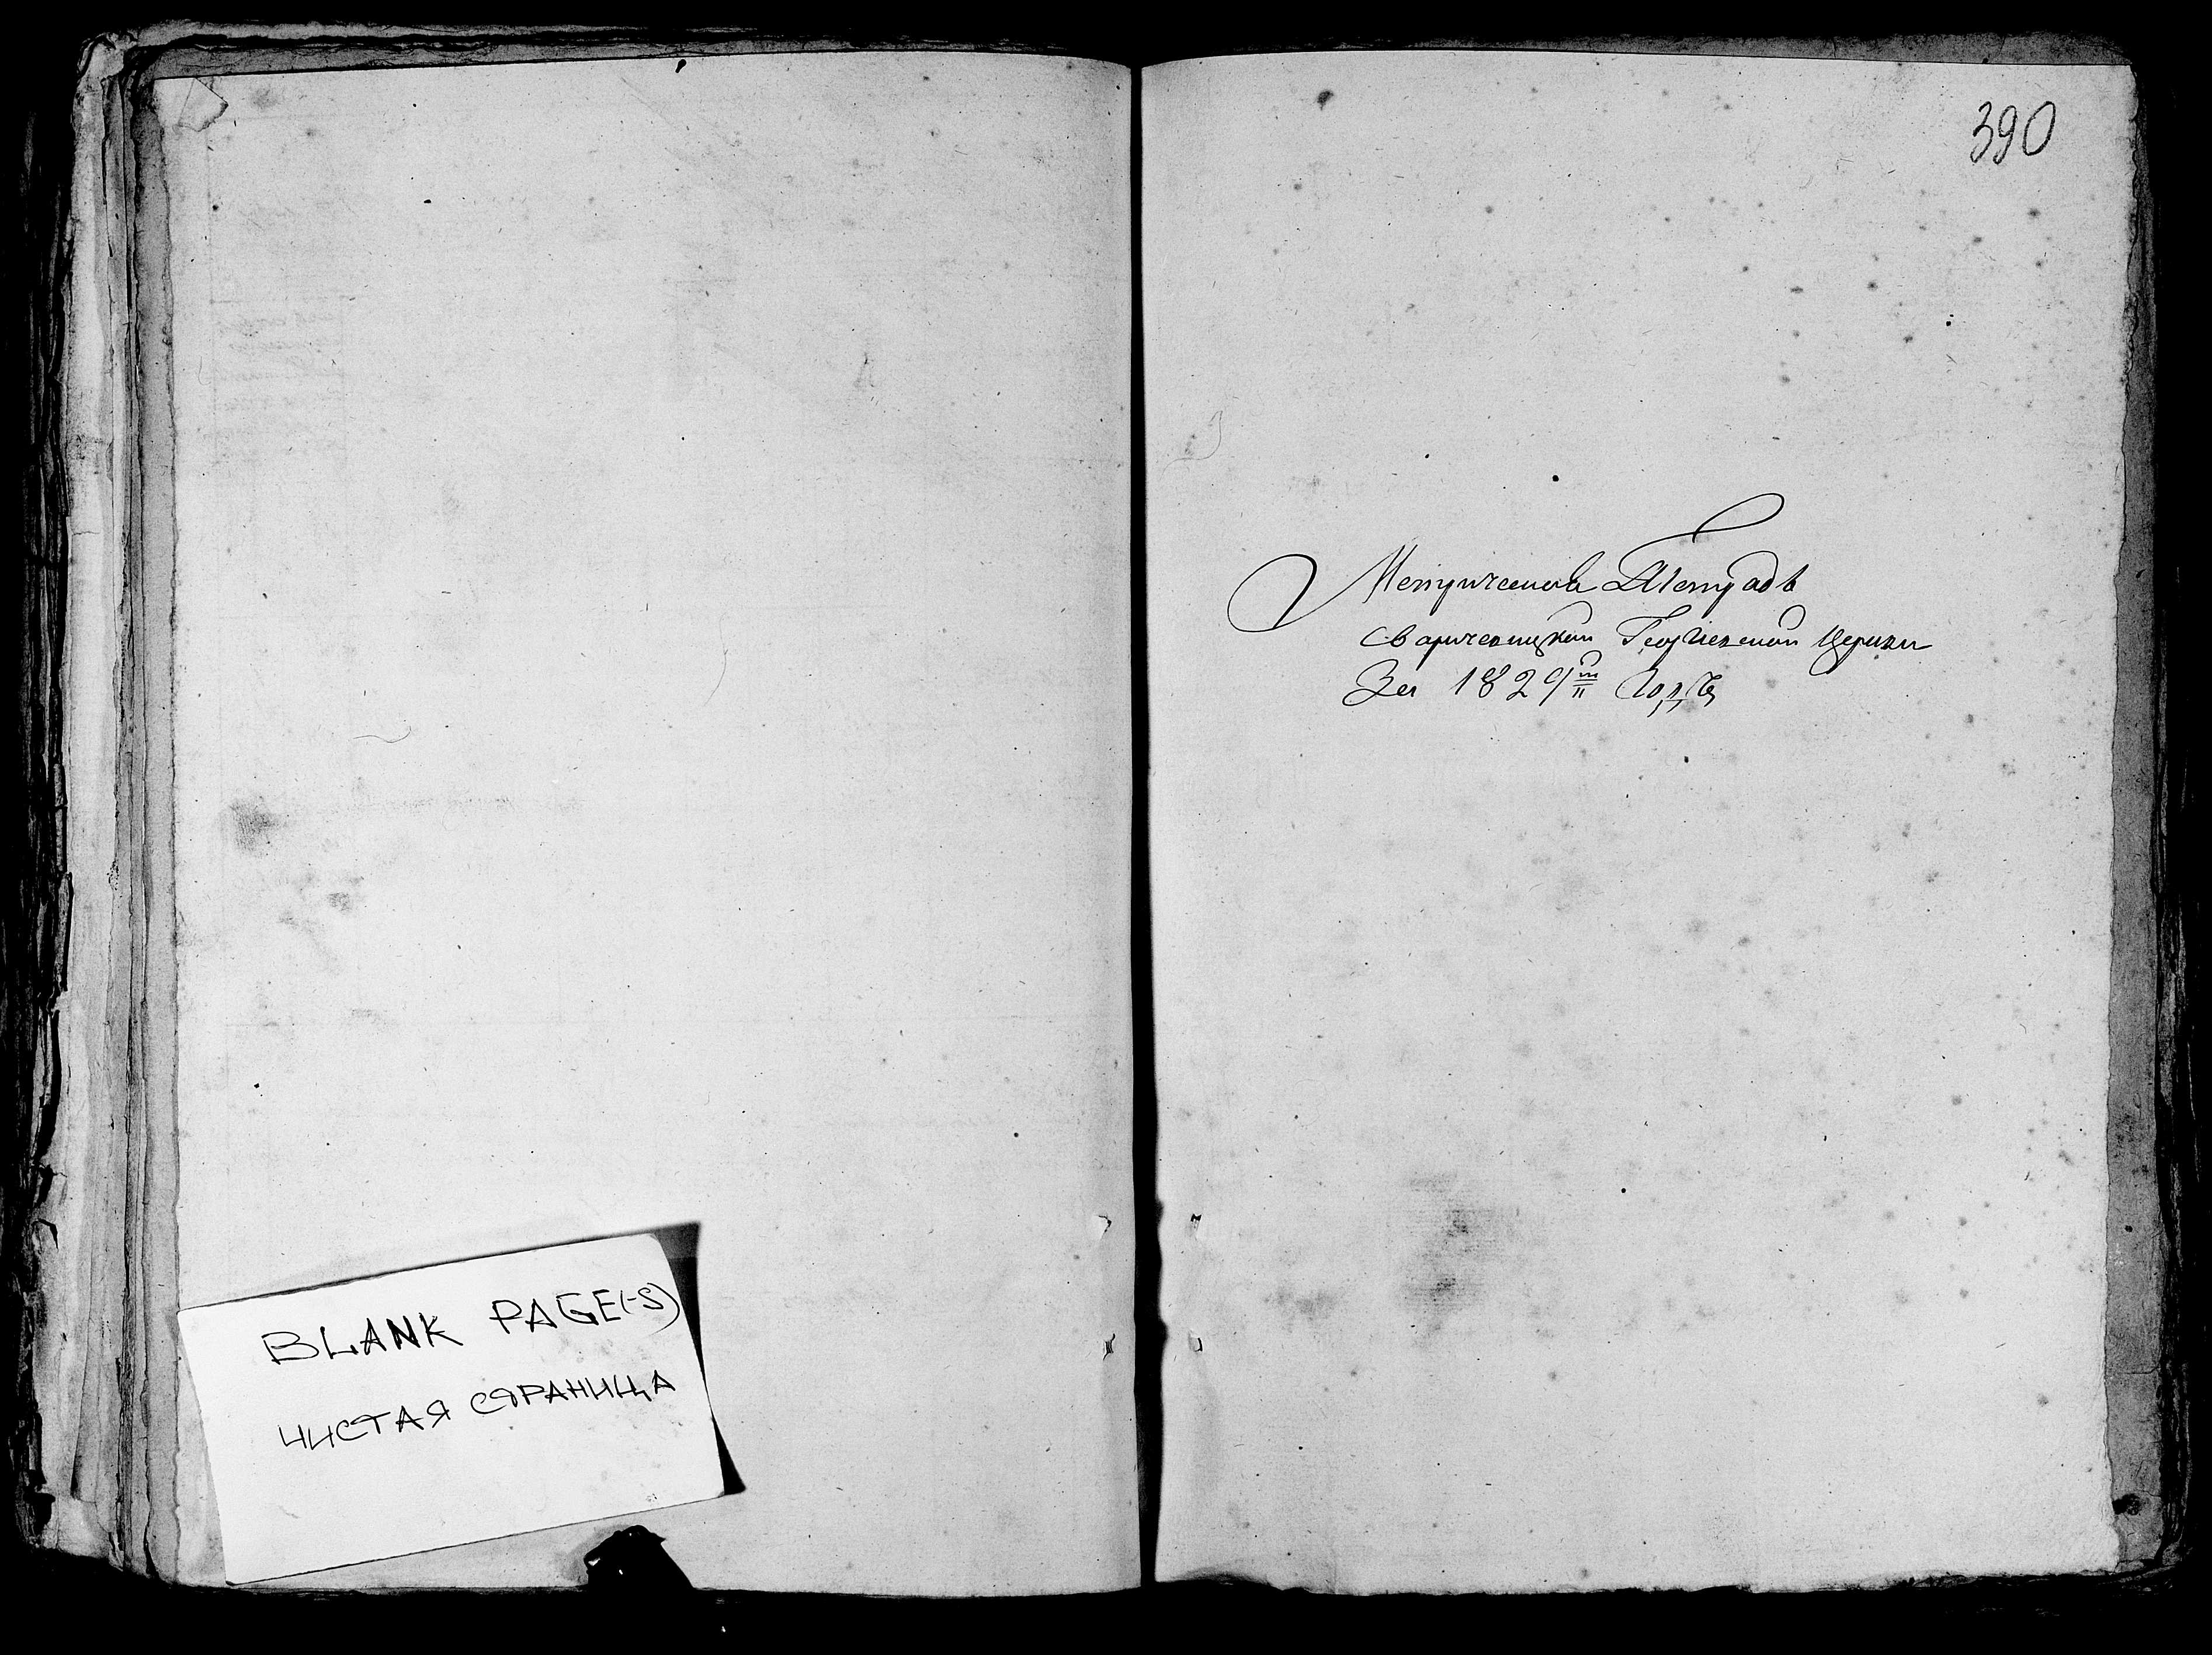 BLANK PAGE(-S)
ЧИСТАЯ СТРАНИЦА
390
Метрическая Тетрадь
Сваричевицкой Георгиевской Церкви
За 1829й Годъ